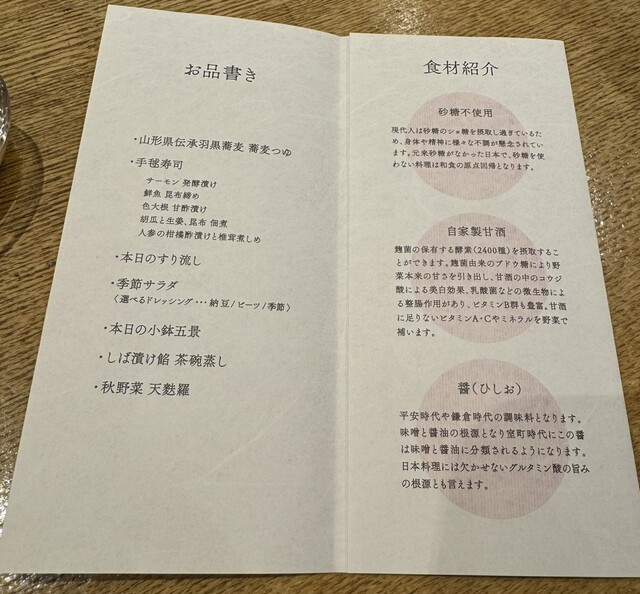 お品書き
・山形県伝承羽黒蕎麦 蕎麦つゆ
・手毬寿司
サーモン 発酵漬け
鮮魚 昆布締め
色大根 甘酢漬け
胡瓜と生姜、昆布 佃煮
人参の柑橘酢漬けと椎茸煮しめ
・本日のすり流し
・季節サラダ
〈選べるドレッシング・・・納豆/ビーツ/季節〉
・本日の小鉢五景
・しば漬け餡 茶碗蒸し
・秋野菜 天麩羅
食材紹介
砂糖不使用
現代人は砂糖のショ糖を摂取し過ぎているた
め、身体や精神に様々な不調が懸念されてい
ます。元来砂糖がなかった日本で、砂糖を使
わない料理は和食の原点回帰となります。
自家製甘酒
麹菌の保有する酵素(2400種)を摂取するこ
とができます。麹菌由来のブドウ糖により野
菜本来の甘さを引き出し、甘酒の中のコウジ
酸による美白効果、乳酸菌などの微生物によ
る整腸作用があり、ビタミンB群も豊富。甘酒
に足りないビタミンA・Cやミネラルを野菜で
補います。
醤(ひしお)
平安時代や鎌倉時代の調味料となります。
味噌と醤油の根源となり室町時代にこの醤
は味噌と醤油に分類されるようになります。
日本料理には欠かせないグルタミン酸の旨み
の根源とも言えます。